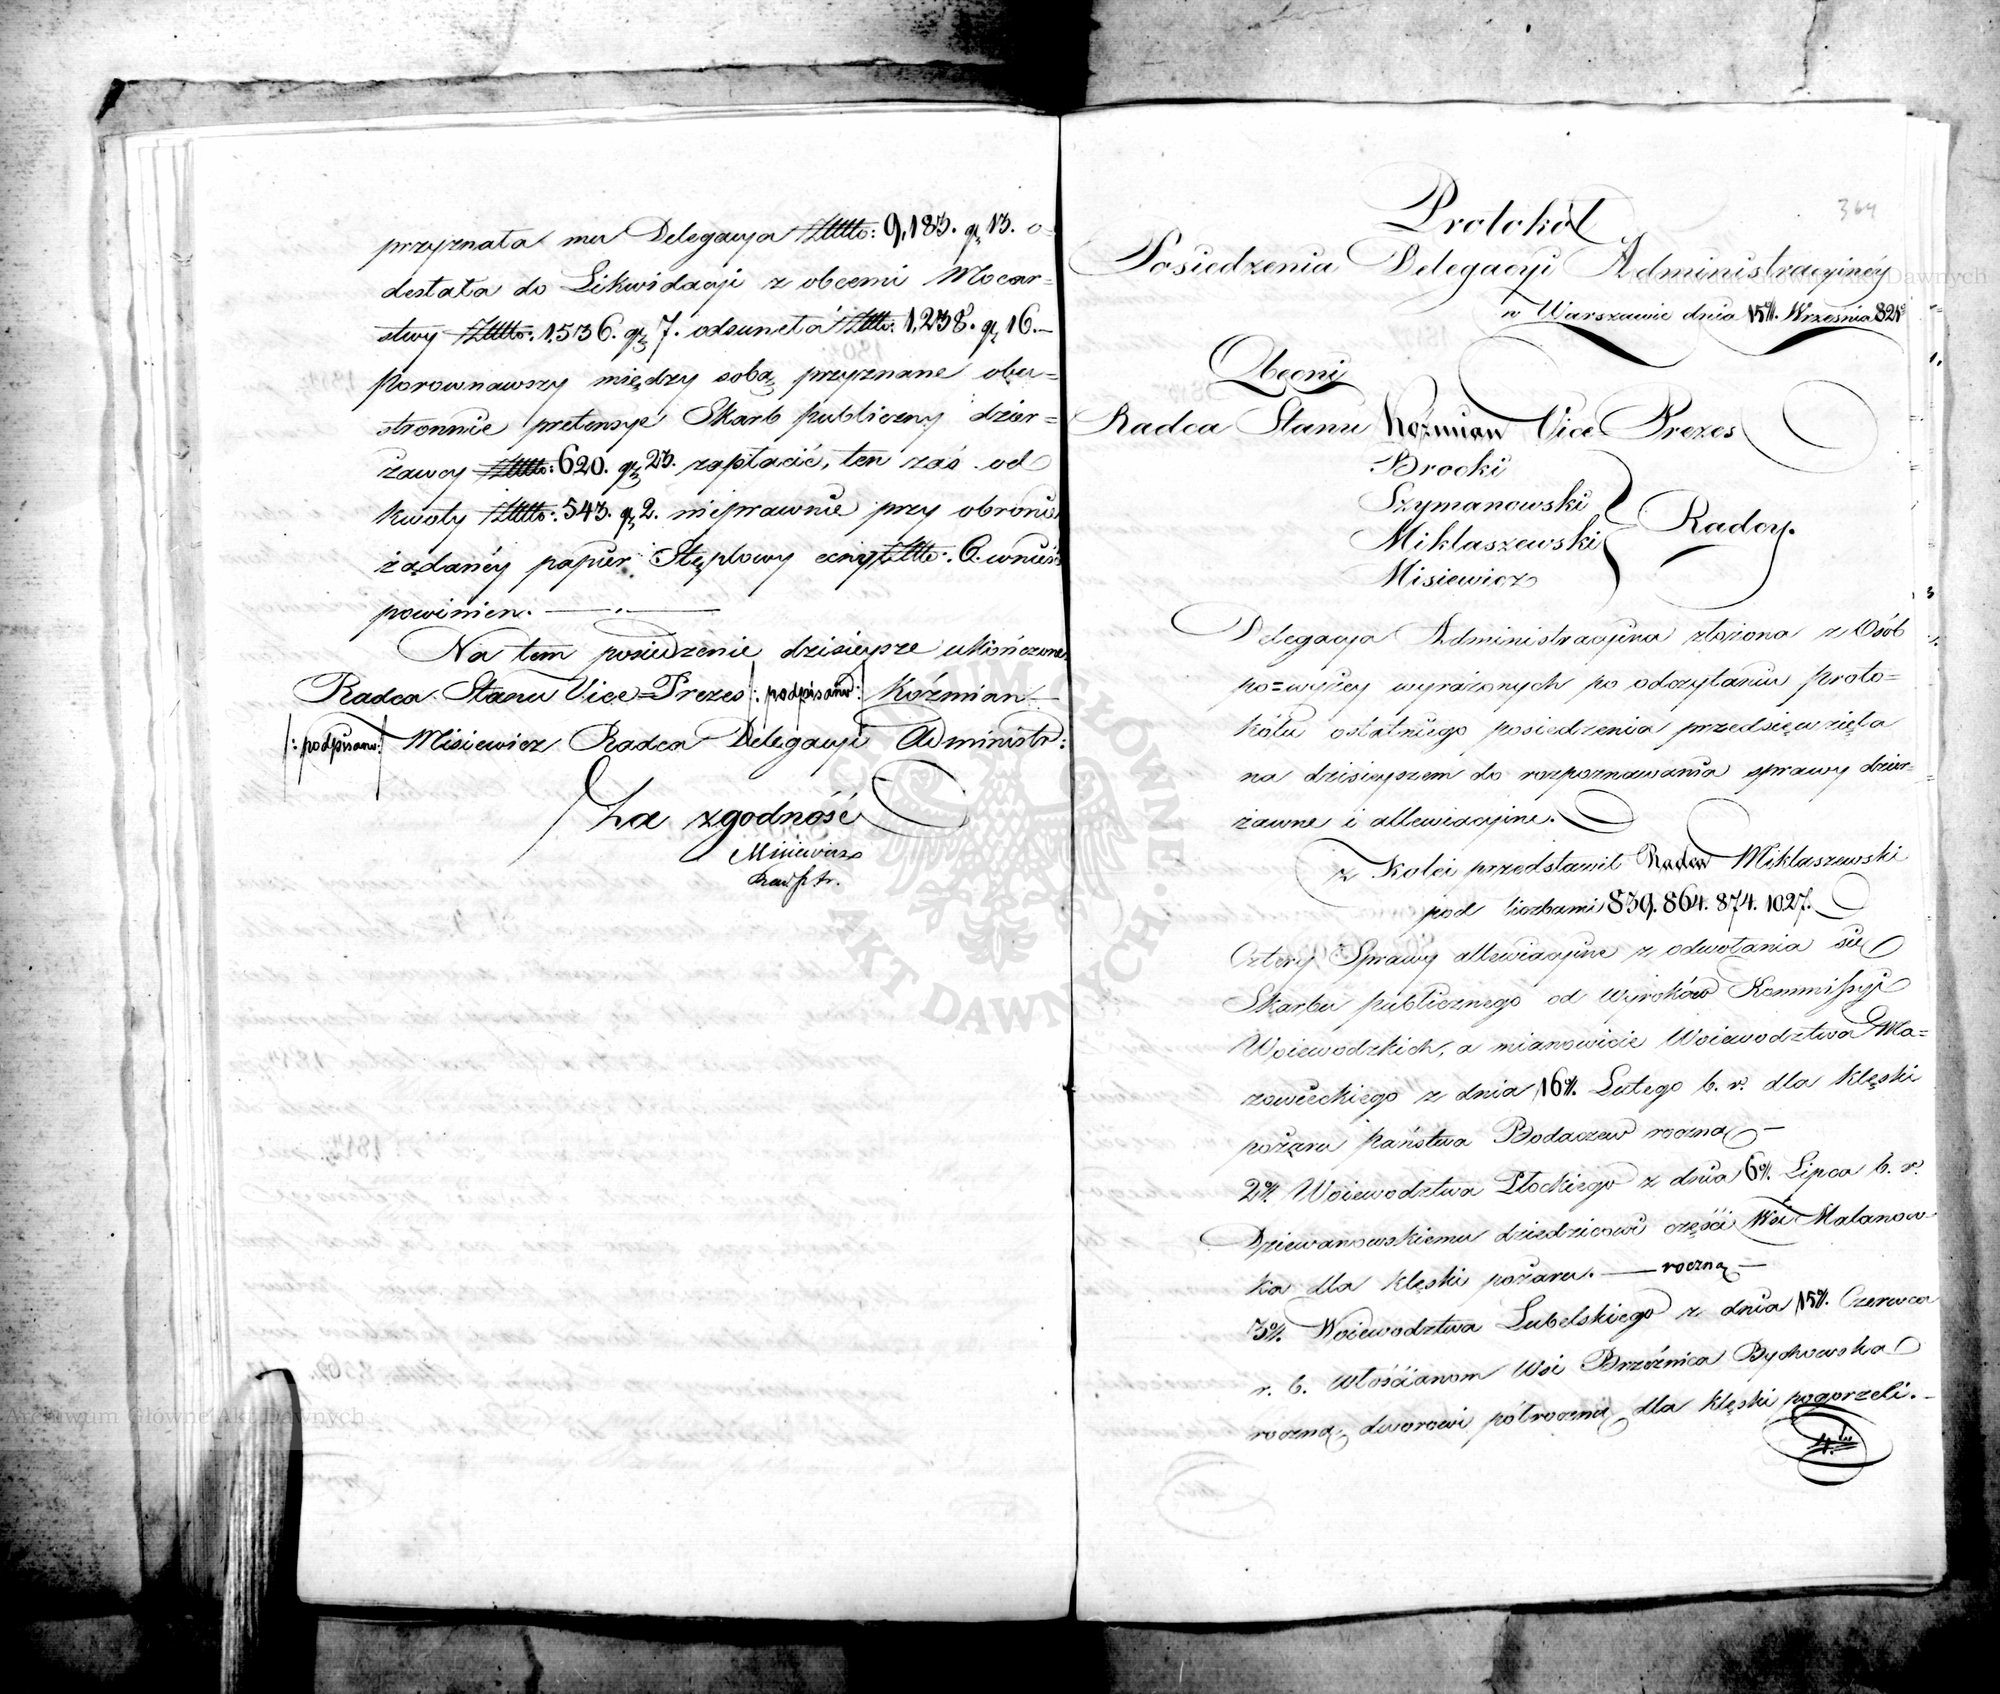 przyznała mu Delegacya Złtto: 9,183. gr 13. o=
desłała do Likwidacji z obcemi Mocar=
stwy Złtto: 1,536. gr 7. odsunęła Złtto: 1,238. gr 16.—
Porownawszy między sobą przyznane obu=
stronnie pretensye Skarb publiczny dzier=
żawcy Złtto: 620. gr 23. zapłacić, ten zaś od
kwoty Złtto: 543. gr 2. nieprawnie przy obronie
żądanéy papier Stęplowy ceny Złtto: 6. wnieść
powinien.
Na tem posiedzenie dzisieysze ukończone.
Radca Stanu Vice=Prezes |: podpisano :| Koźmian
|: podpisano :| Misiewicz Radca Delegacyi Administr:
Za zgodność
Misiewicz
364
Protokół
Posiedzenia Delegacyi Administracyinéy
w Warszawie dnia 15º. Września 821º
Obecni
Radca Stanu Koźmian Vice Prezes
Brocki
Szymanowski
Miklaszewski
Radcy.
Misiewicz
Delegacya Administracyina złożona z Osób
po=wyżey wyrażonych po odczytaniu proto=
kółu ostatniego posiedzenia przedsięwzięła
na dzisieyszem do rozpoznawania sprawy dzier=
żawne i allewiacyine.
z Kolei przedstawił Radca Miklaszewski
pod liczbami 839. 864. 874. 1027.
Cztery Sprawy allewiacyine z odwołania się
Skarbu publicznego od wyroków Kommissyi
Woiewodzkich, a mianowicie Woiewodztwa Ma=
zowieckiego z dnia 16º. Lutego b. r. dla klęski
pożaru państwa Bodaczew roczną —
2º. Woiewodztwa Płockiego z dnia 6º. Lipca b. r.
Dziewanowskiemu dziedzicowi części Wsi Malanow=
ka dla klęski pożaru. — roczną —
3º. Woiewodztwa Lubelskiego z dnia 15º. Czerwca
r. b. włościanom Wsi Brzóżnica Bychowska
roczną, dworowi półroczną dla klęski pogorzeli.
4to